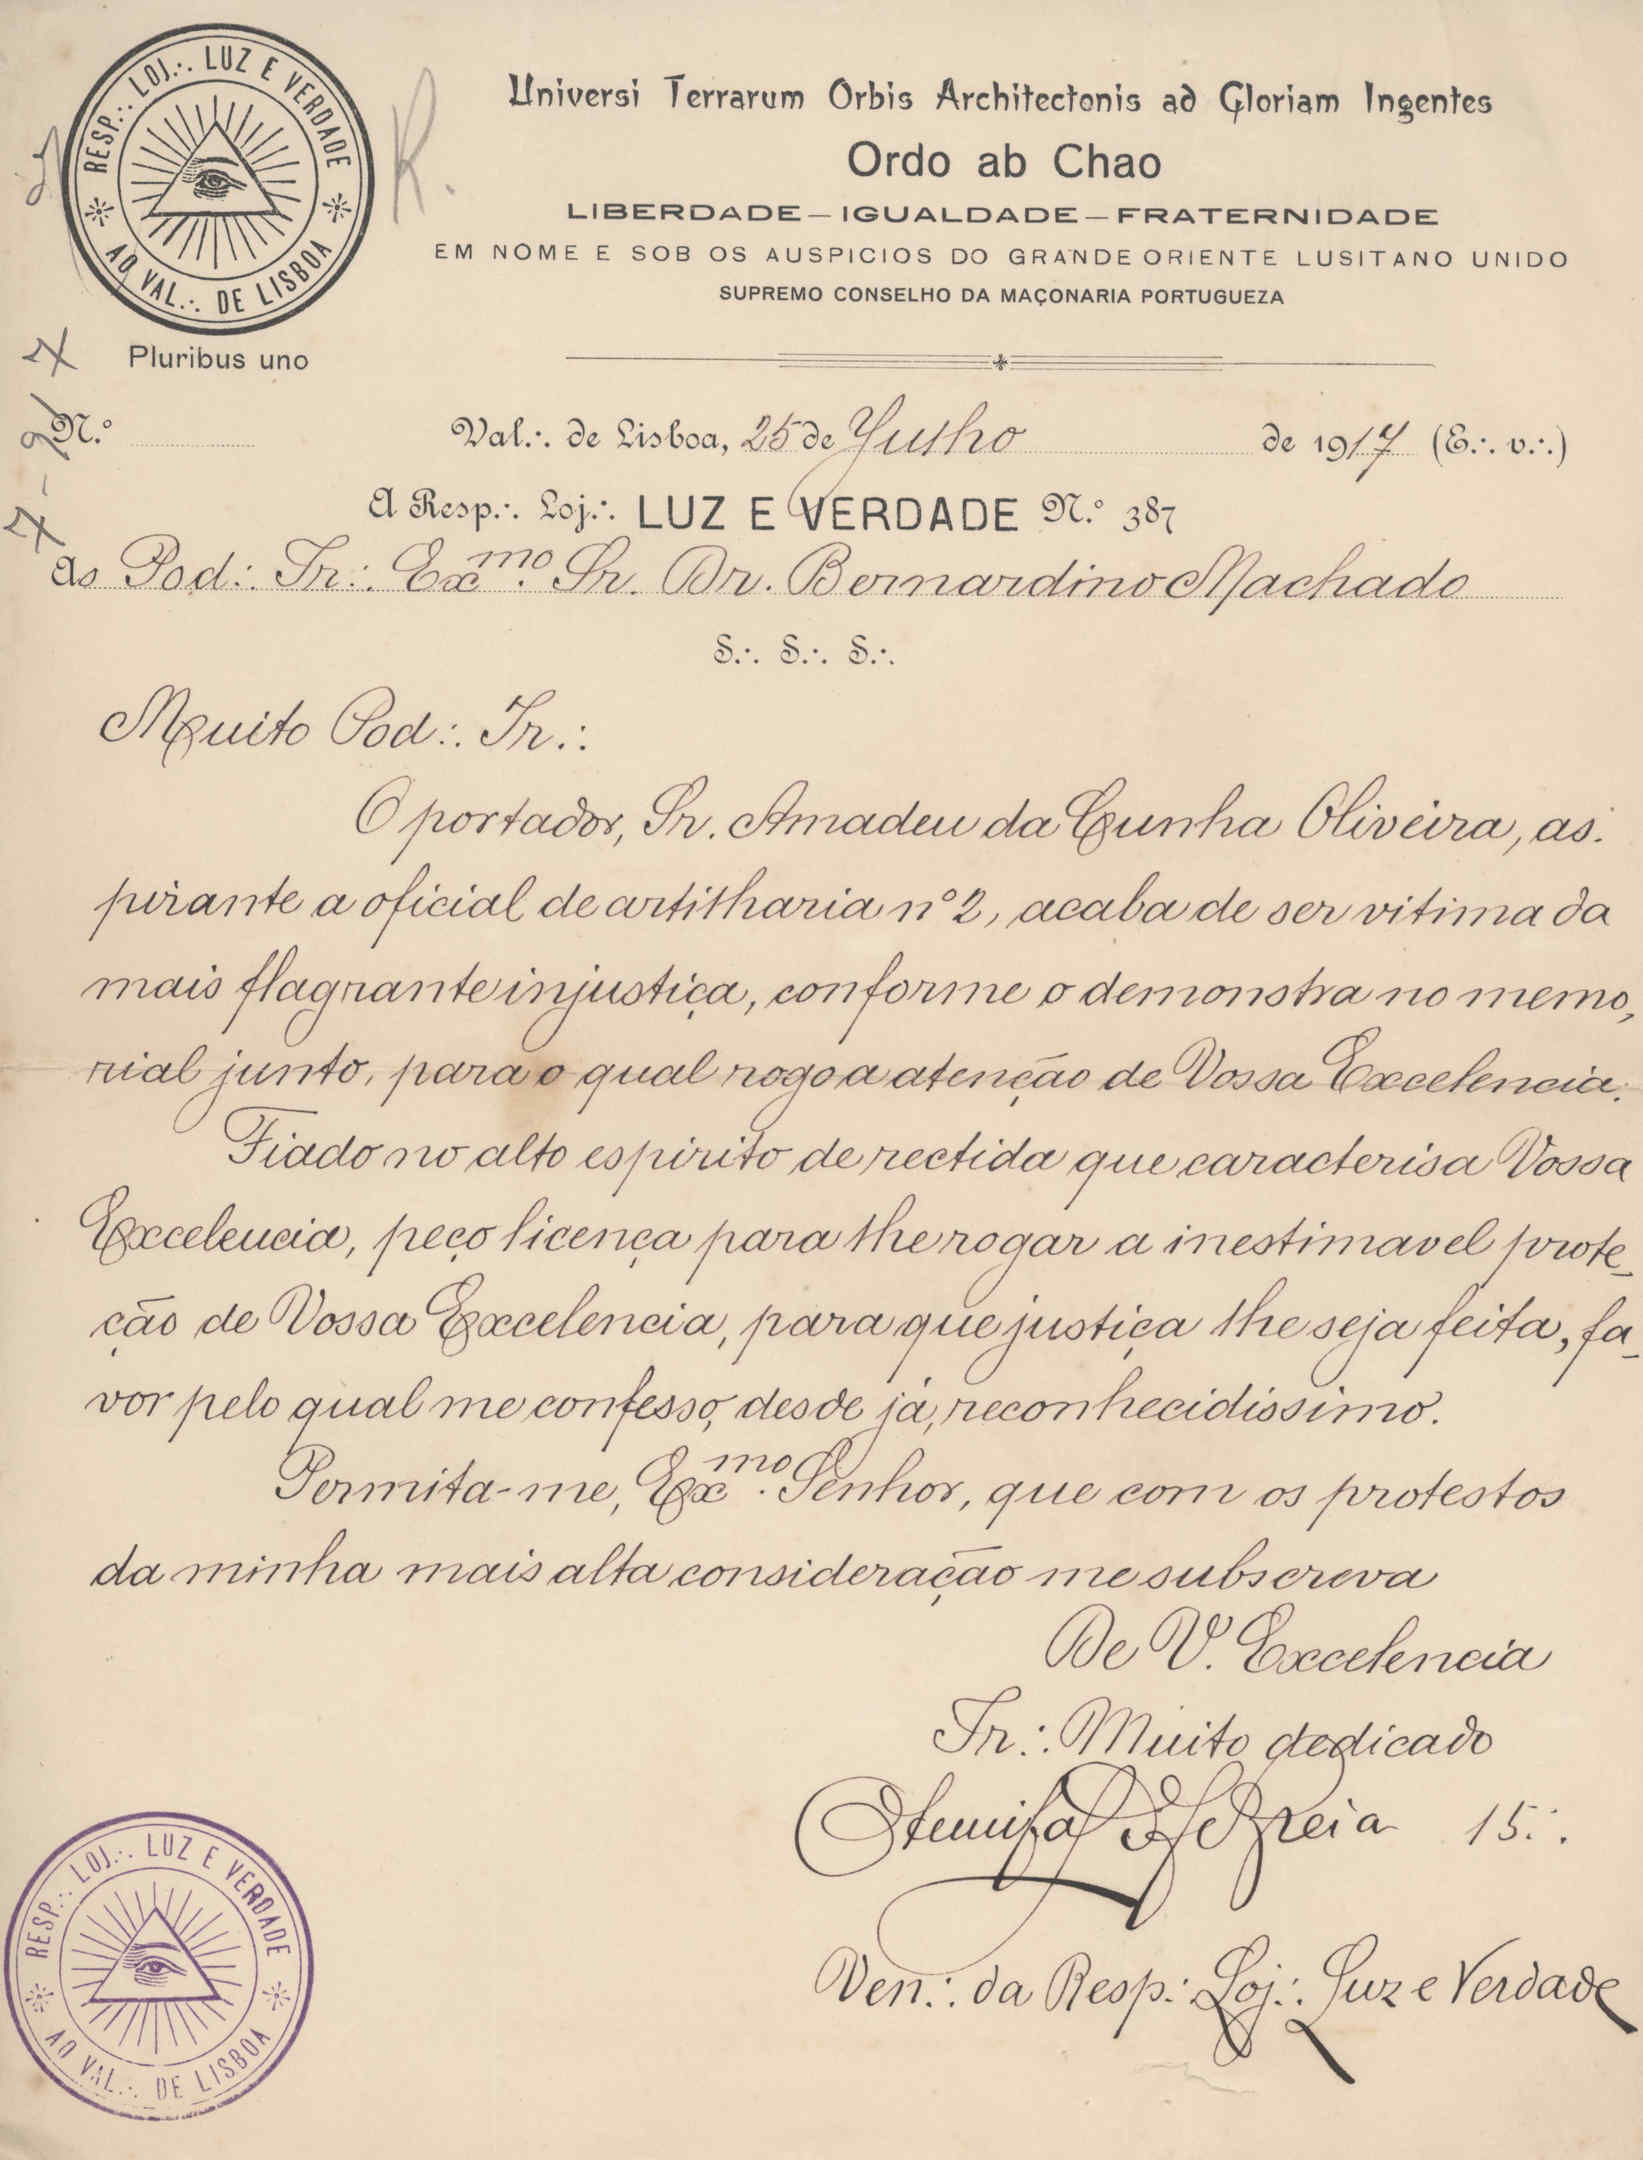 RESP.·. LOJ.·. LUZ E VERDADE
AO VAL.·. DE LISBOA
Pluribus uno
R.
Universi Terrarum Orbis Architectonis ad Gloriam Ingentes
Ordo ab Chao
LIBERDADE — IGUALDADE — FRATERNIDADE
EM NOME E SOB OS AUSPICIOS DO GRANDE ORIENTE LUSITANO UNIDO
SUPREMO CONSELHO DA MAÇONARIA PORTUGUEZA
N.º
Val.·. de Lisboa, 25 de Julho de 1917 (E.·. v.·.)
A Resp.·. Loj.·. LUZ E VERDADE N.º 387
Ao Pod.·. Ir.·. Exmo. Sr. Dr. Bernardino Machado
S.·. S.·. S.·.
Muito Pod.·. Ir.·.
O portador, Sr. Amadeu da Cunha Oliveira, as-
pirante a oficial de artilharia nº 2, acaba de ser vitima da
mais flagrante injustiça, conforme o demonstra no memo-
rial junto, para o qual rogo a atenção de Vossa Excelencia.
Fiado no alto espirito de rectida que caracterisa Vossa
Excelencia, peço licença para lhe rogar a inestimavel prote-
ção de Vossa Excelencia, para que justiça lhe seja feita, fa-
vor pelo qual me confesso, desde já, reconhecidissimo.
Permita-me, Exmo. Senhor, que com os protestos
da minha mais alta consideração me subscreva
De V. Excelencia
Ir.·. Muito dedicado
15.·.
Ven.·. da Resp.·. Loj.·. Luz e Verdade
RESP.·. LOJ.·. LUZ E VERDADE
AO VAL.·. DE LISBOA